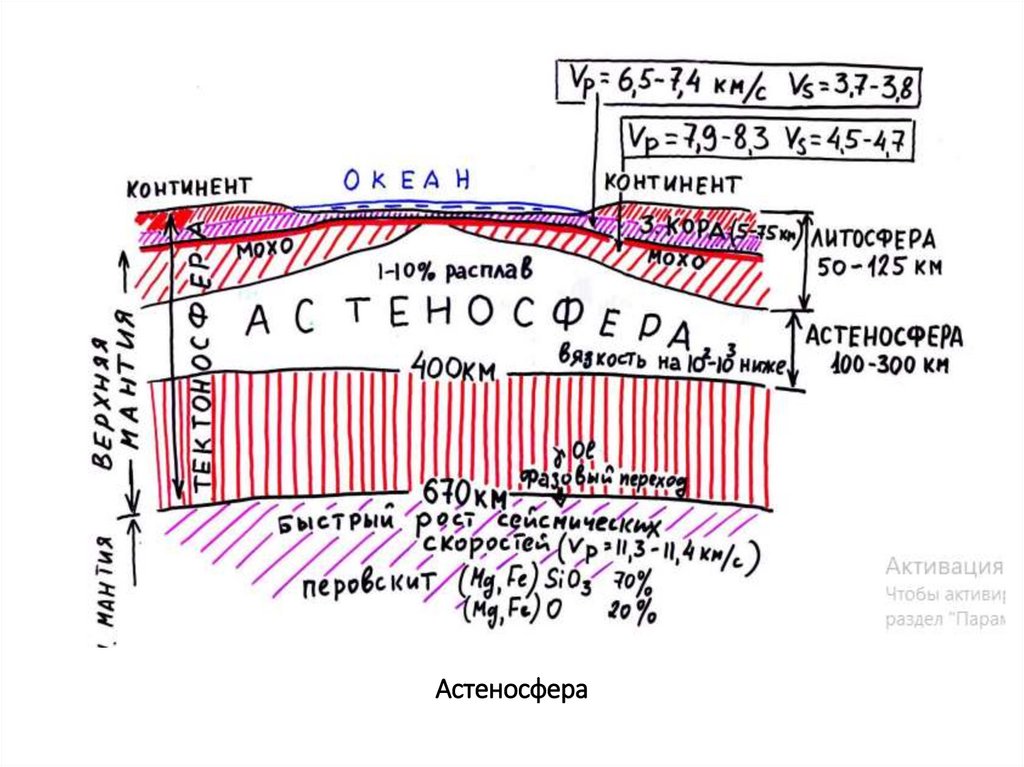 Vp = 6,5-7,4 км/с Vs = 3,7-3,8
Vp = 7,9-8,3 Vs = 4,5-4,7
КОНТИНЕНТ
ОКЕАН
КОНТИНЕНТ
З. КОРА (5-75 км)
МОХО
МОХО
ЛИТОСФЕРА
50-125 КМ
1-10% расплав
АСТЕНОСФЕРА
АСТЕНОСФЕРА
100-300 КМ
вязкость на 10²-10³ ниже
400КМ
ВЕРХНЯЯ
МАНТИЯ
ТЕКТОНОСФЕРА
γ Ol
фазовый переход
670КМ
Быстрый рост сейсмических
скоростей (Vp = 11,3-11,4 км/с)
перовскит (Mg, Fe) SiO3 70%
(Mg, Fe) O 20%
МАНТИЯ
Активация
Чтобы активи
раздел "Парам
Астеносфера